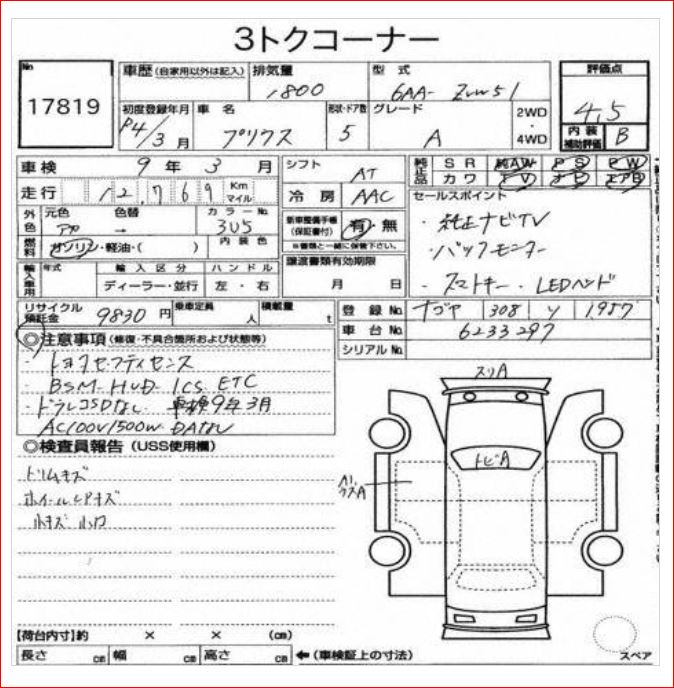 3トクコーナー
No 17819
車歴 (自家用以外は記入) 排気量 1800 型式 6AA-ZVW51 評価点 4.5
初度登録年月 R4/3月 車名 プリウス 形状・ドア数 5 グレード A 2WD・4WD 内装補助評価 B
車検 9年 3月 シフト AT 純正品 SR 純AW PS PW
カワ TV ナビ エアB
走行 12,769 Km マイル 冷房 AAC セールスポイント
外色 元色 アカ 色替 → カラーNo. 3U5 新車整備手帳(保証書付) 有・無 ※書類と一緒に保管下さい。
・純正ナビTV
燃料 ガソリン・軽油・( ) 内装色
・バックモニター
輸入車用 年式 輸入区分 ディーラー・並行 ハンドル 左・右 譲渡書類有効期限 月 日
・スマートキー・LEDヘッド
リサイクル預託金 9830円 乗車定員 人 積載量 t 登録No. ナゴヤ 308 ソ 1957
車台No. 6233297
シリアルNo.
◎注意事項 (修復・不具合箇所および状態等)
・トヨタセーフティセンス
・BSM・HUD・ICS ETC
・ドラレコSDなし 車検9年3月
AC100V1500W DATAなし
◎検査員報告 (USS使用欄)
ドリムキズ
ホイールピアキズ
小キズ 小凹
スリA
トビA
スペア
【荷台内寸】約 × × (cm)
長さ cm 幅 cm 高さ cm ←(車検証上の寸法)